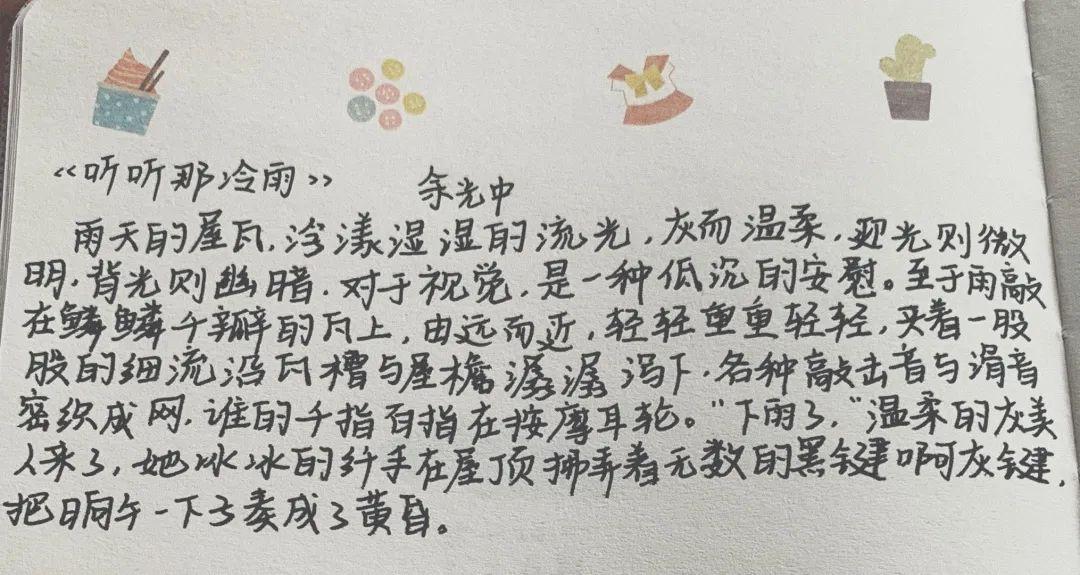 《听听那冷雨》 余光中
雨天的屋瓦，浮漾湿湿的流光，灰而温柔，迎光则微
明，背光则幽暗，对于视觉，是一种低沉的安慰。至于雨敲
在鳞鳞千瓣的瓦上，由远而近，轻轻重重轻轻，夹着一股
股的细流沿瓦槽与屋檐潺潺泻下，各种敲击音与滑音
密织成网，谁的千指百指在按摩耳轮。“下雨了，”温柔的灰美
人来了，她冰冰的纤手在屋顶拂弄着无数的黑键啊灰键，
把晌午一下子奏成了黄昏。